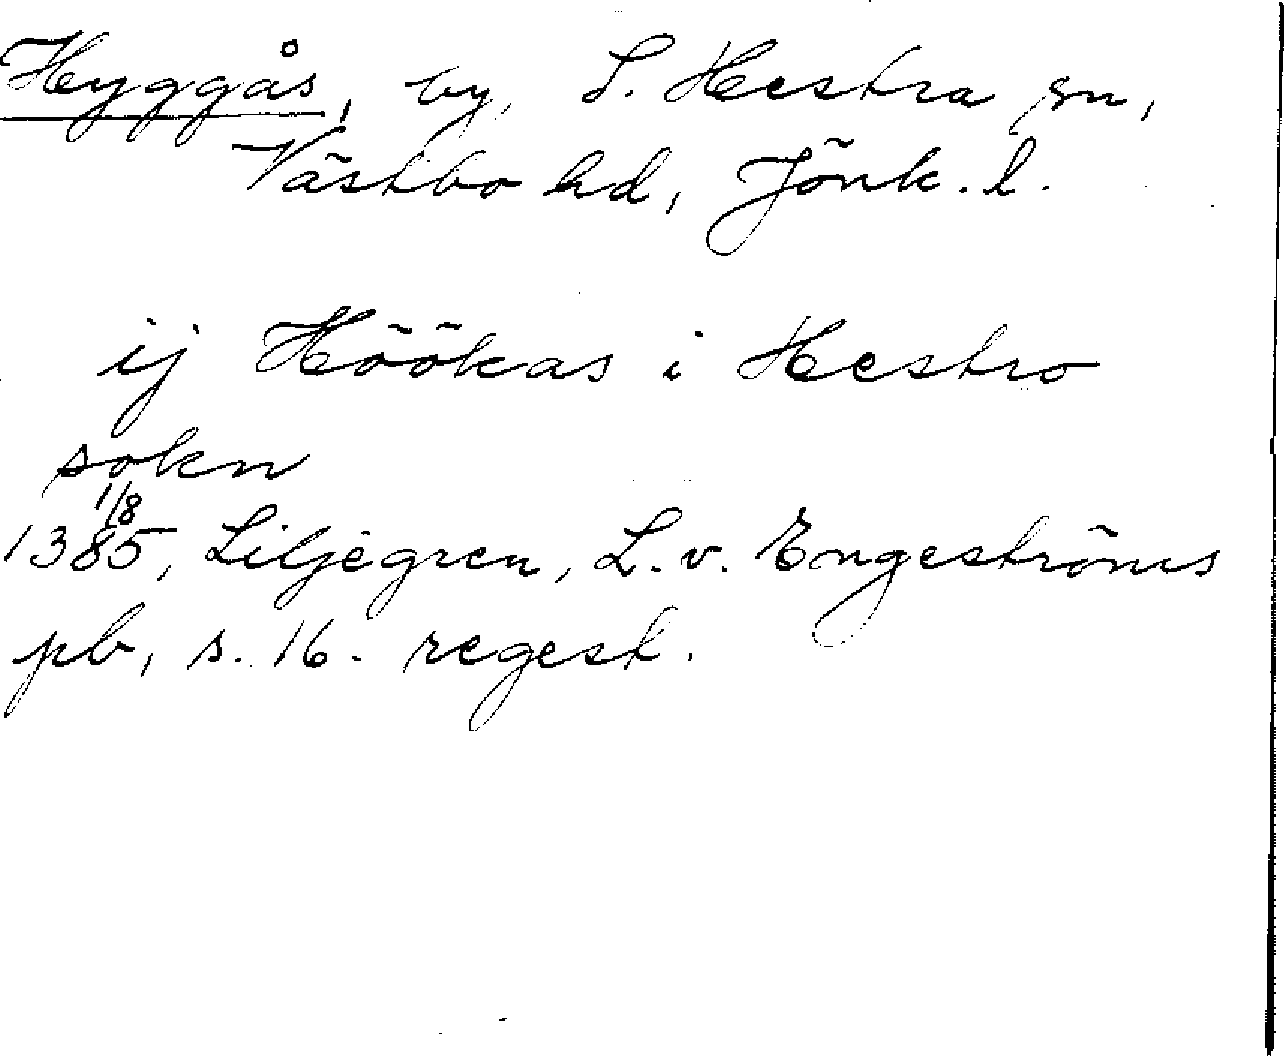 Hyggås, by, S. Hestra sn,
Västbo hd, Jönk. l.
ij Höökas i Hestro
sokn
1385 1/8, Liljegren, L. v. Engeströms
pb, s. 16. regest.